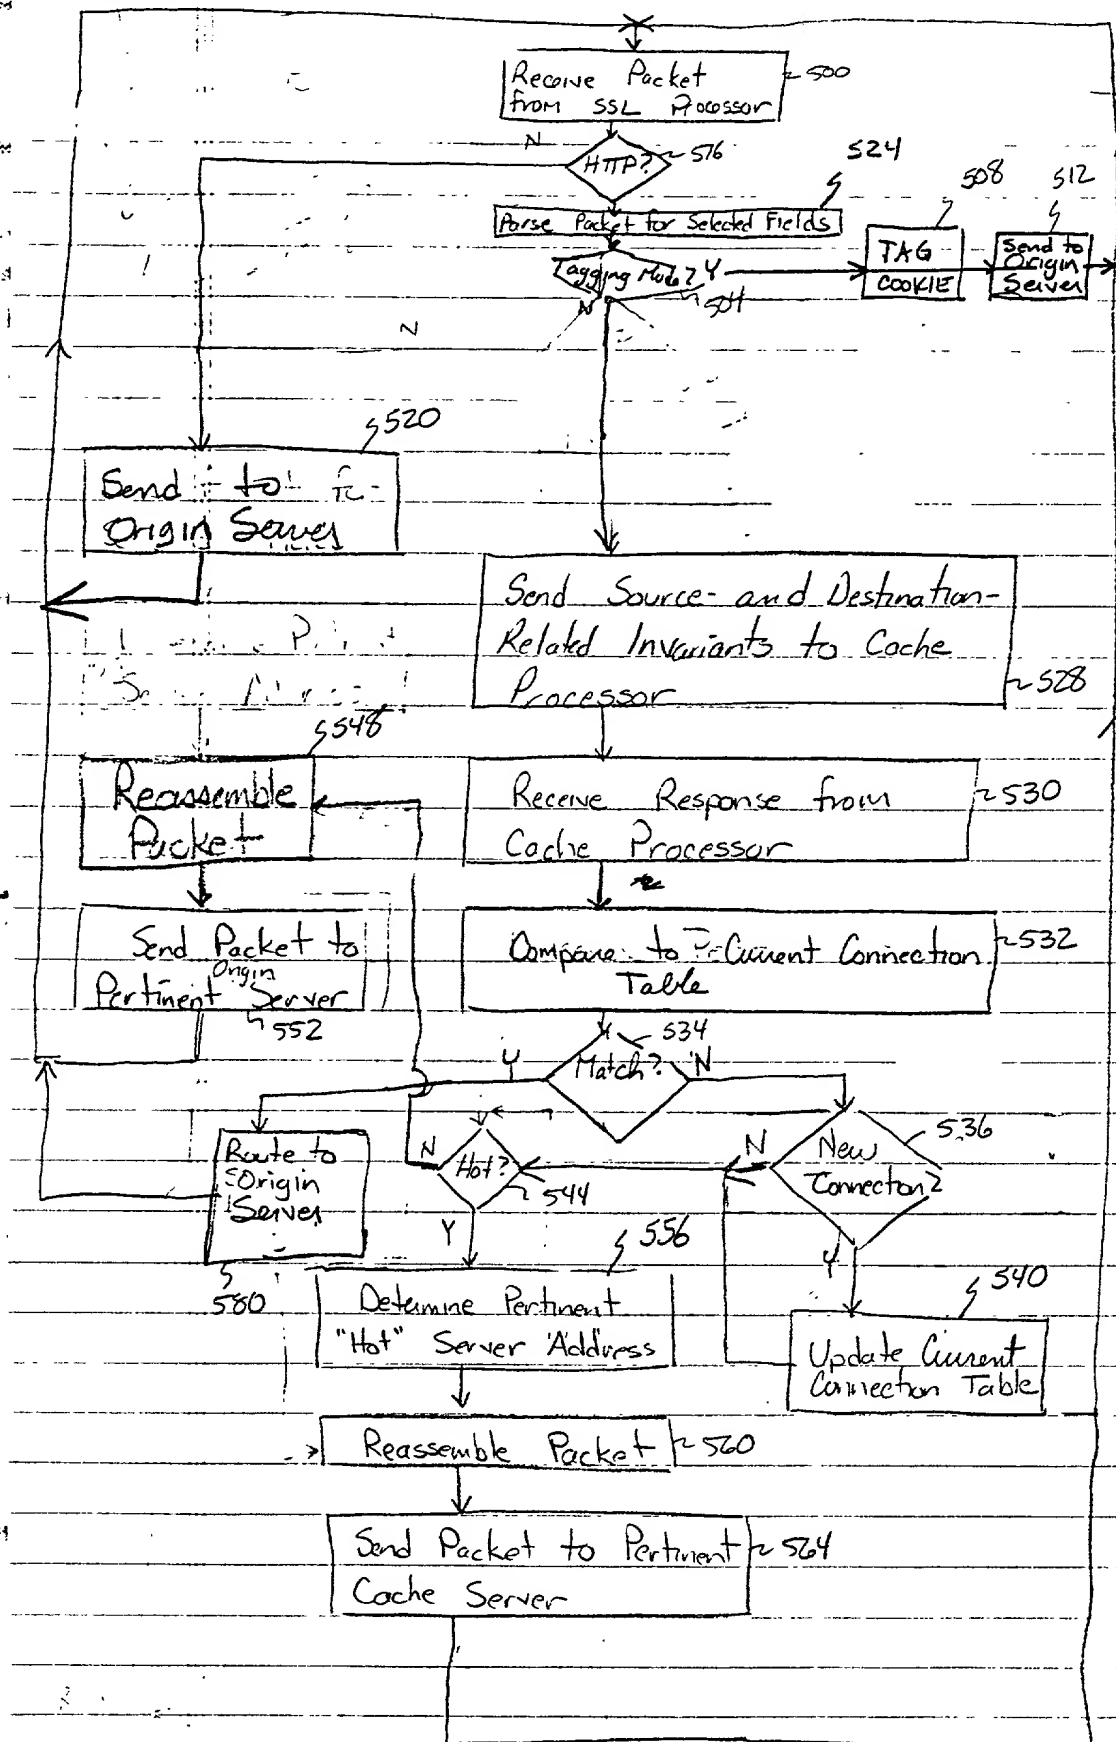 Receive Packet
from SSL Processor
500
N
HTTP?
516
524
Parse Packet for Selected Fields
508
512
Tagging Mode?
Y
504
N
TAG
COOKIE
Send to
Origin
Server
N
520
Send to
Origin Server
Send Source- and Destination-
Related Invariants to Cache
Processor
528
548
Reassemble
Packet
Receive Response from
Cache Processor
530
Send Packet to
Origin
Pertinent Server
552
Compare to Current Connection
Table
532
534
Match?
Y
N
Route to
Origin
Server
580
N
Hot?
544
Y
N
New
Connection?
536
Y
556
Determine Pertinent
"Hot" Server Address
540
Update Current
Connection Table
Reassemble Packet
560
Send Packet to Pertinent
Cache Server
564